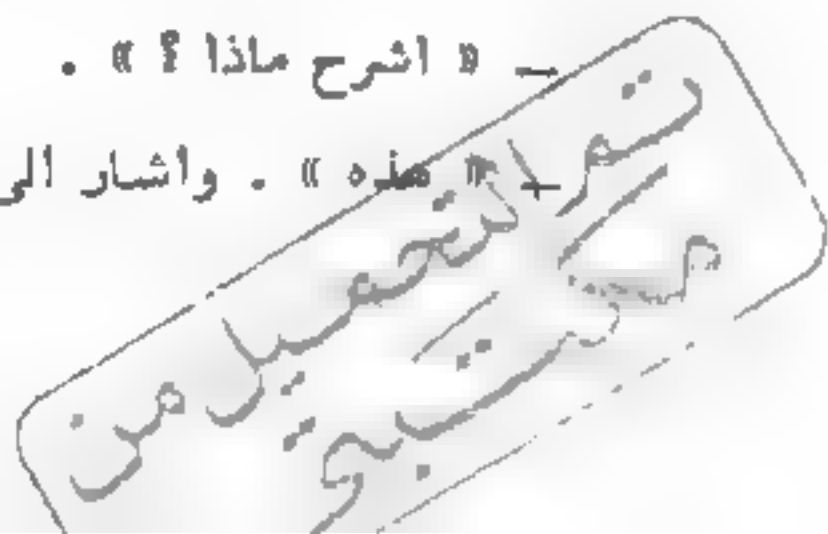 ـ « اشرح ماذا ؟ » .
ـ « هذه » . واشار الى
تم التحميل من
مكتبتي